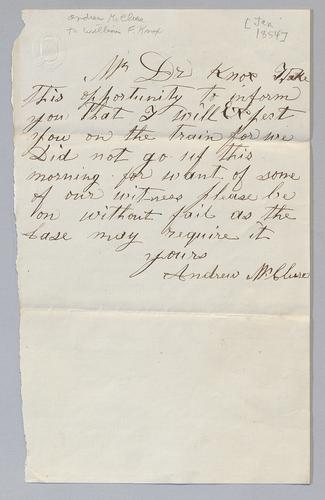 Andrew McClure
to William F. Knox
[Jan
1854]
Mr Dr Knox I take
This opportunity to inform
you that I will Expect
you on the train for we
did not go up this
morning for want of some
of our witness please be
on without fail as the
Case may require it
yours
Andrew McClure